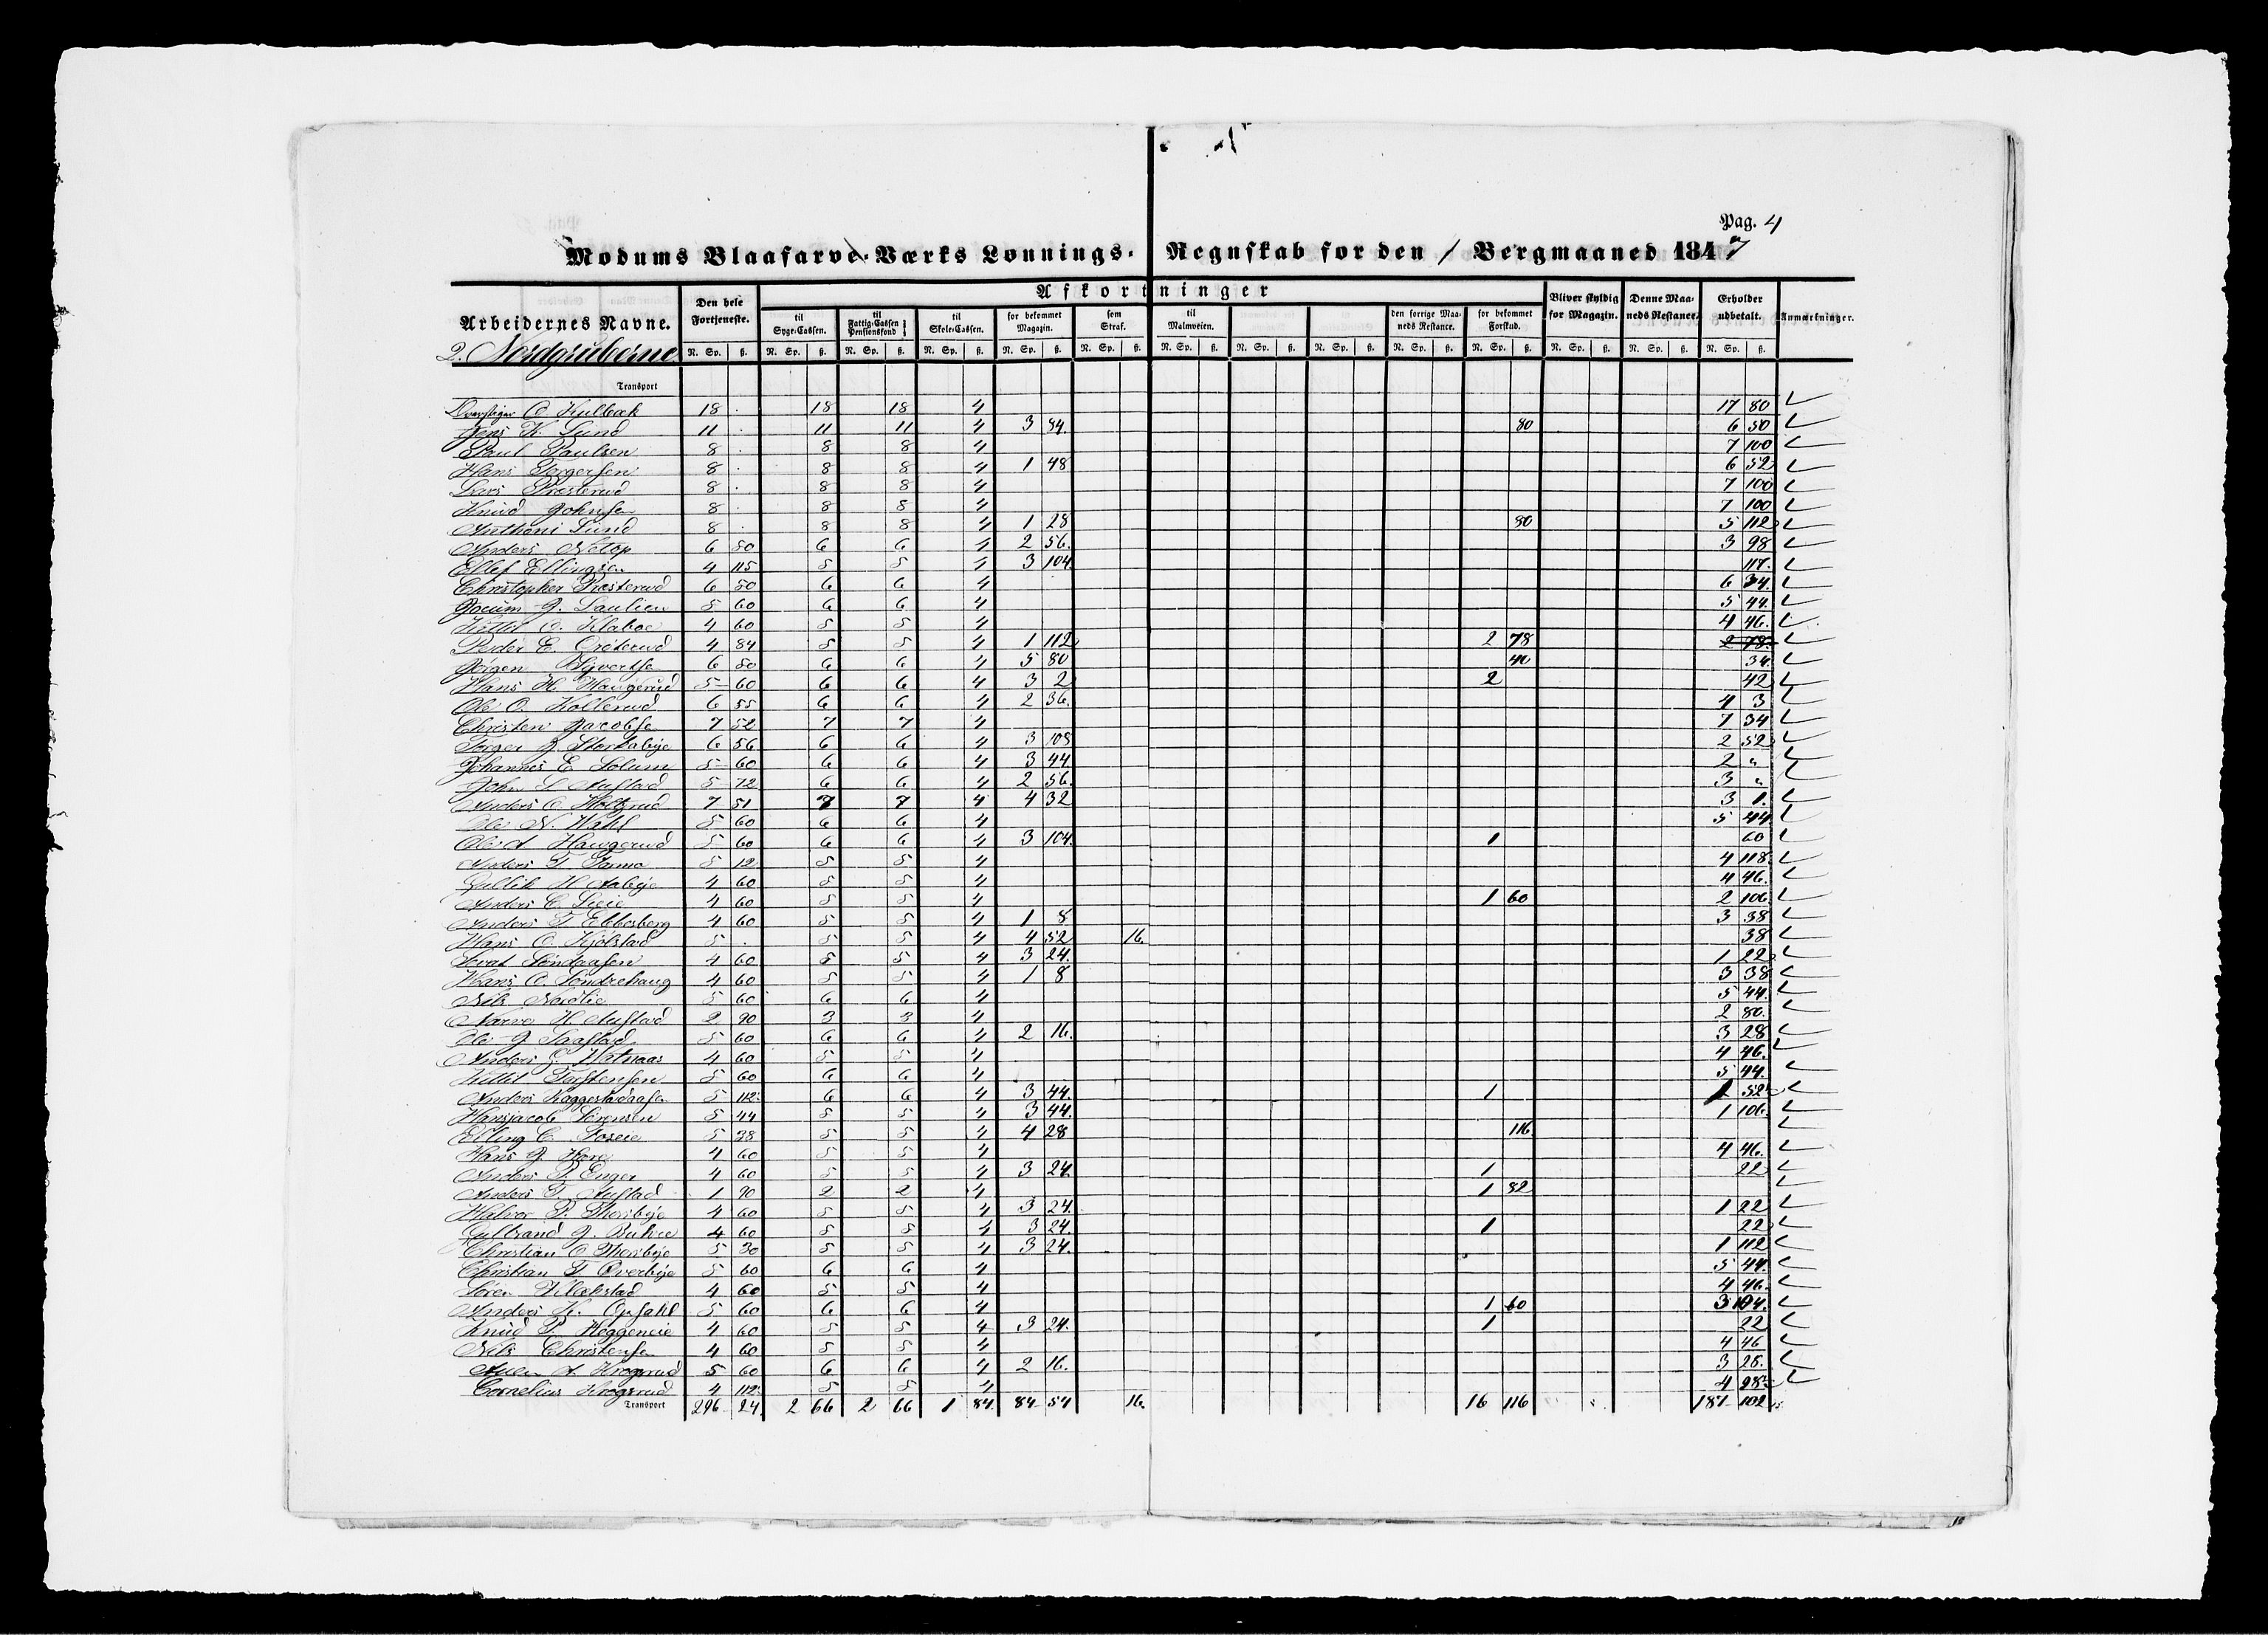 Pag. 4
Modums Blaafarve-Værks Lønnings- Regnskab for den 1 Bergmaaned 1847
Arbeidernes Navne. Den hele Fortjeneste. Afkortninger Bliver skyldig for Magazin. Denne Maaneds Restance. Erholder udbetalt. Anmærkninger.
til Syge-Cassen. til Fattig-Cassen Pensionsfond til Skole-Cassen. for bekommet Magazin. som Straf. til Malmveien. den forrige Maaneds Restance. for bekommet Forskud.
2. Nordgruberne N. Sp. ß. N. Sp. ß. N. Sp. ß. N. Sp. ß. N. Sp. ß. N. Sp. ß. N. Sp. ß. N. Sp. ß. N. Sp. ß. N. Sp. ß. N. Sp. ß. N. Sp. ß. N. Sp. ß. N. Sp. ß.
Transport
O. Kulbæk 18 . 18 18 4 17 80
Jens K. Lund 11 . 11 11 4 3 84. 80 6 50
Paul Paulsen 8 . 8 8 4 7 100
Hans Torgersen 8 . 8 8 4 1 48 6 52
Lars Præsterud 8 . 8 8 4 7 100
Knud Johnsen 8 . 8 8 4 7 100
Anthoni Lund 8 . 8 8 4 1 28 80 5 112
Anders Netop 6 50 6 6 4 2 56. 3 98
Ellef Ellingsen 4 115 5 5 4 3 104 117.
Christopher Præsterud 6 50 6 6 4 6 34.
Jocum J. 5 60 6 6 4 5 44.
Kittil O. Klaboe 4 60 5 5 4 4 46.
Peder E. 4 84 5 5 4 1 112 2 78 2 78
Jørgen Syvertsen 6 50 6 6 4 5 80 40 34.
Hans H. Haugerud 5 60 6 6 4 3 2 2 42
Ole O. Kollerud 6 55 6 6 4 2 36. 4 3
Christen Jacobsen 7 52 7 7 4 7 34
Torger J. 6 56 6 6 4 3 108 2 52
Johannes E. Solum 5 60 6 6 4 3 44 2 "
John L. Aufstad 5 72 6 6 4 2 56. 3 "
Anders O. 7 51 7 7 4 4 32 3 1.
Ole N. Wahl 5 60 6 6 4 5 44
Ole A. Haugerud 5 60 6 6 4 3 104. 1 60
Anders T. 5 12 5 5 4 4 118
Gullik H. Aabye 4 60 5 5 4 4 46.
Anders C. 4 60 5 5 4 1 60 2 106
Anders T. Ebbesberg 4 60 5 5 4 1 8. 3 38
Hans O. Kjølstad 5 . 5 5 4 4 52 16. 38
4 60 5 5 4 3 24. 1 22
Hans O. Søndrehaug 4 60 5 5 4 1 8 3 38
Nils Nordlie 5 60 6 6 4 5 44.
Narve H. Aufstad 2 90 3 3 4 2 80.
Ole J. 5 60 6 6 4 2 16. 3 28
Anders G. Watnaas 4 60 5 5 4 4 46.
Kittil Torstensen 5 60 6 6 4 5 44.
Anders 5 112 6 6 4 3 44. 1 1 52
Hansjacob Sørensen 5 44 5 5 4 3 44. 1 106.
Elling C. 5 38 5 5 4 4 28 116.
Hans J. 4 60 5 5 4 4 46.
Anders P. Enger 4 60 5 5 4 3 24. 1 22
Anders T. Aufstad 1 90 2 2 4 1 82
Halvor P. Thorsbye 4 60 5 5 4 3 24. 1 22
Gulbrand J. 4 60 5 5 4 3 24. 1 22
Christian O. Thorsbye 5 30 5 5 4 3 24. 1 112
Christian T. Overbye 5 60 6 6 4 5 44.
Søren 4 60 5 5 4 4 46.
Anders K. Opsahl 5 60 6 6 4 1 60 3 104.
Knud P. Heggeneie 4 60 5 5 4 3 24. 1 22
Nils Christensen 4 60 5 5 4 4 46
A. Krogsrud 5 60 6 6 4 2 16. 3 28.
Cornelius Krogsrud 4 112 5 5 4 4 98
Transport 296 24. 2 66 2 66 1 84 84 54 16. 16 116 187 102